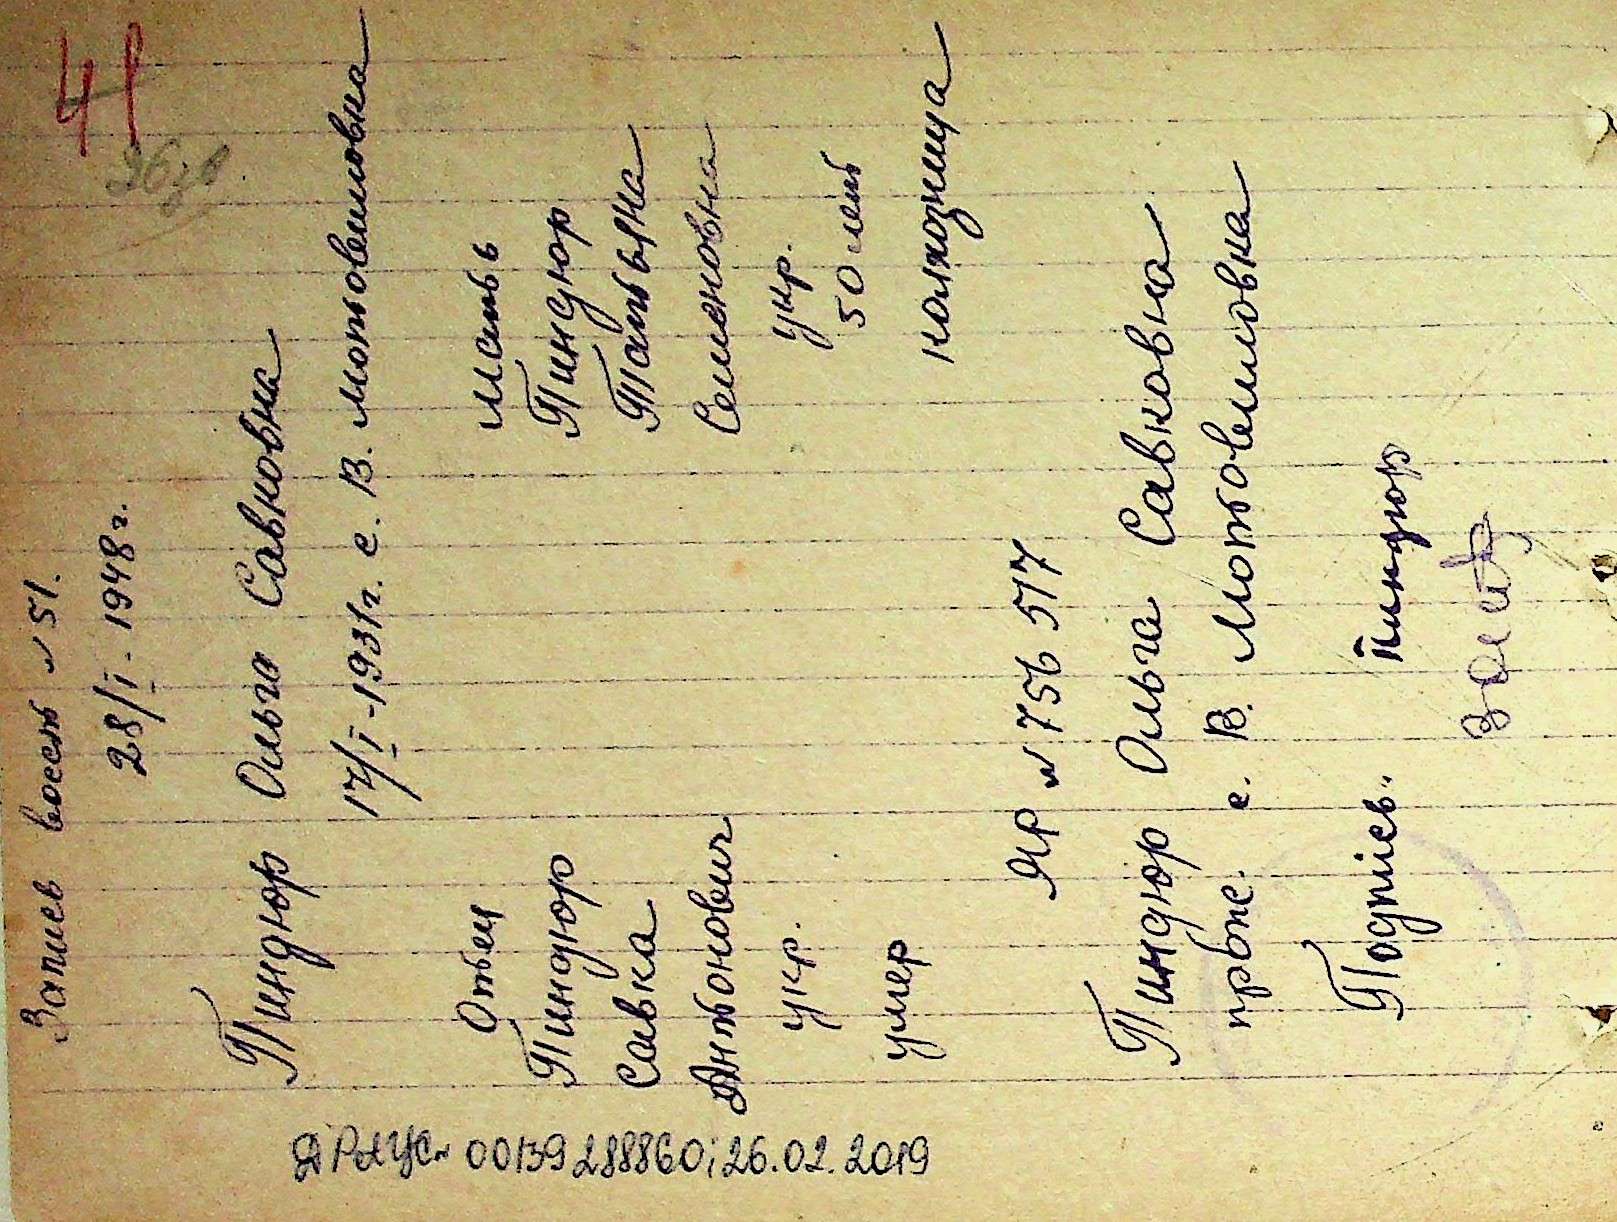 41
Запись восст №51.
28/I-1948г.
Пиндюр Ольга Савковна
17/I-1931г. с. В. Мотовиловка
Отец
Пиндюр
Савка
Антонович
укр.
умер
Мать
Пиндюр
Татьяна
Семеновна
укр.
50 лет
колхозница
ЯР №756517
Пиндюр Ольга Савковна
прож. с. В. Мотовиловка
Подпись. Пиндюр
00139288860; 26.02.2019